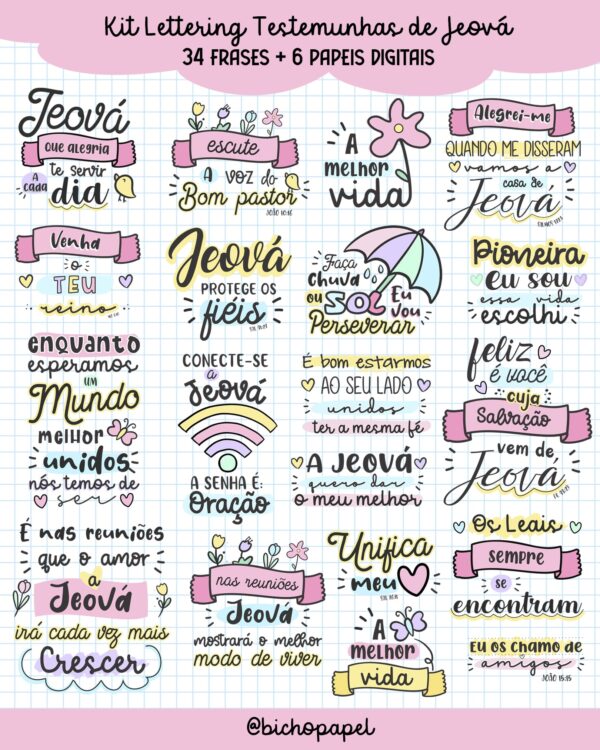 Kit Lettering Testemunhas de Jeová
34 FRASES + 6 PAPEIS DIGITAIS
Jeová
QUE ALEGRIA
A CADA
te servir
dia
escute
A voz do
Bom pastor
JOÃO 10:16
A
melhor
vida
Alegrei-me
QUANDO ME DISSERAM
vamos a
casa de
Jeová
Venha
o
TEU
reino
Jeová
PROTEGE OS
fiéis
Faça
Chuva
ou SOL Eu
vou
Perseverar
Pioneira
Eu sou
essa vida
escolhi
enquanto
esperamos
UM
Mundo
melhor
unidos
nós temos de
ser
CONECTE-SE
a
Jeová
A SENHA É:
Oração
É bom estarmos
AO SEU LADO
unidos
ter a mesma fé
A JEOVÁ
quero dar
o meu melhor
feliz
é você
cuja
Salvação
vem de
Jeová
É nas reuniões
que o amor
a
Jeová
irá cada vez mais
Crescer
nas reuniões
Jeová
mostrará o melhor
modo de viver
Unifica
meu
A
melhor
vida
Os Leais
sempre
se
encontram
Eu os chamo de
amigos
JOÃO 15:15
@bichopapel